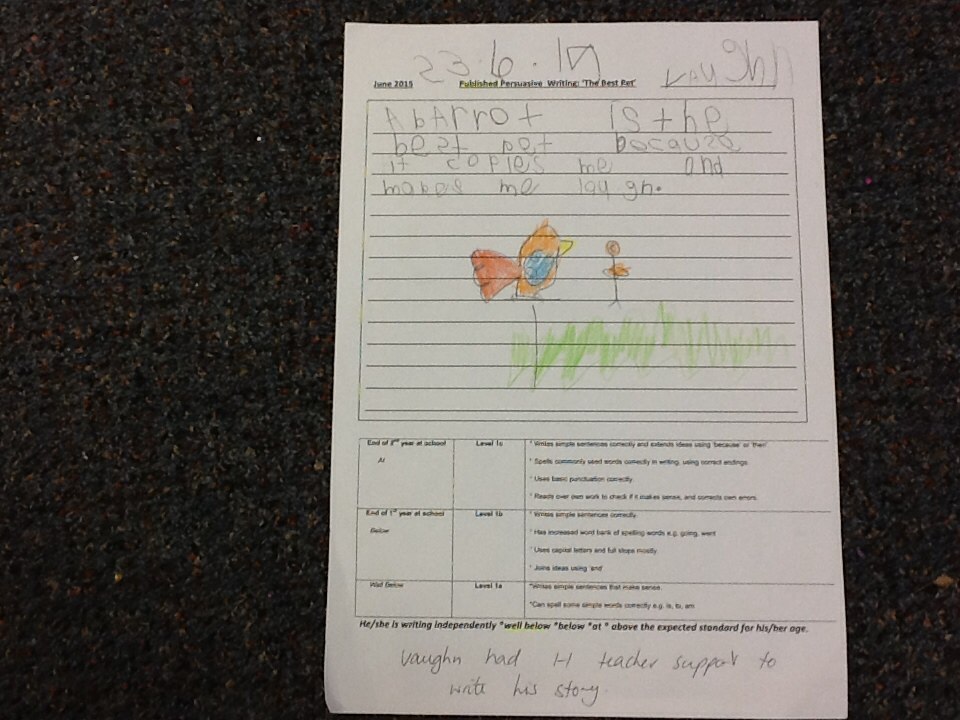 23.6.15
vaughn
June 2015 Published Persuasive Writing: 'The Best Pet'
A parrot is the
best pet becauze
it copies me and
makes me laugh.
End of 2nd year at school Level 1c * Writes simple sentences correctly and extends ideas using 'because' or 'then'
At * Spells commonly used words correctly in writing, using correct endings.
* Uses basic punctuation correctly.
* Reads over own work to check if it makes sense, and corrects own errors.
End of 1st year at school Level 1b * Writes simple sentences correctly.
Below * Has increased word bank of spelling words e.g. going, went
* Uses capital letters and full stops mostly
* Joins ideas using 'and'
Well Below Level 1a *Writes simple sentences that make sense.
*Can spell some simple words correctly e.g. is, to, am
He/she is writing independently *well below *below *at * above the expected standard for his/her age.
Vaughn had 1-1 teacher support to
write his story.